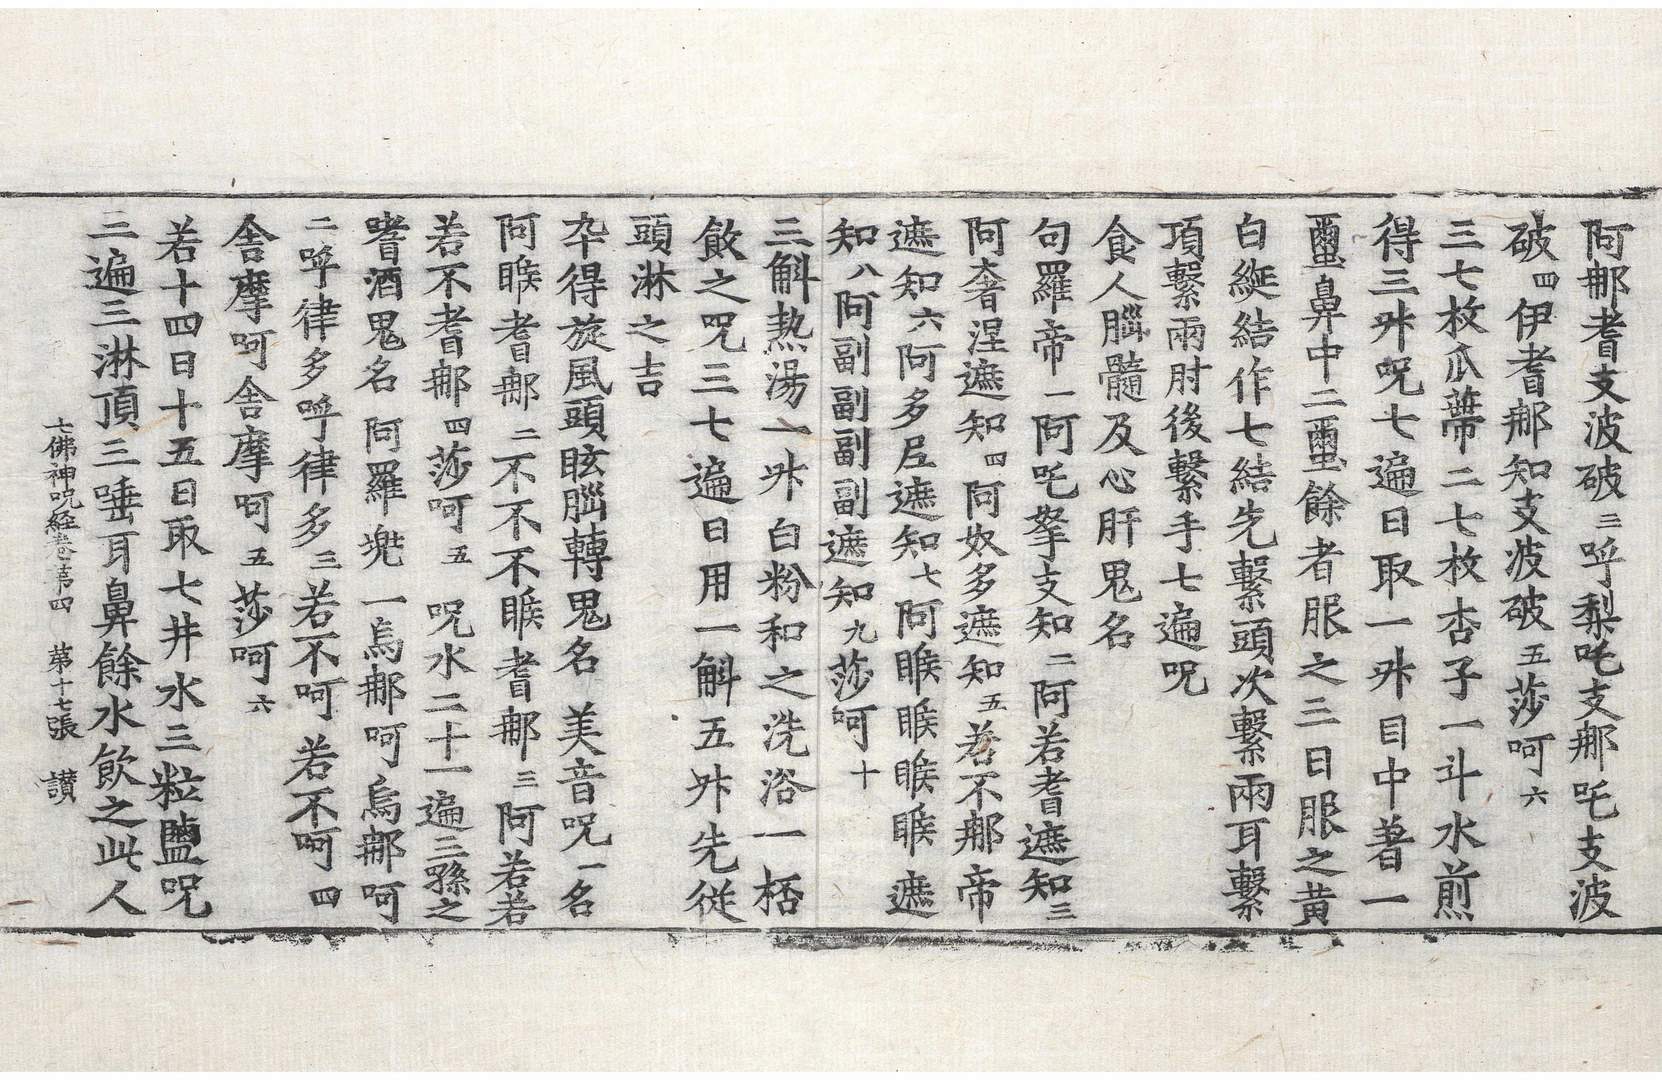 阿那耆支波破三呼梨吒支那吒支波
破四伊耆那知支波破五莎呵六
三七枚瓜蔕二七枚杏子一斗水煎
得三升呪七遍日取一升目中著一
𤫊鼻中二𤫊餘者服之三日服之黃
白綖結作七結先繫頭次繫兩耳繫
項繫兩肘後繫手七遍呪
食人腦髓及心肝鬼名
句羅帝一阿吒拏支知二阿若耆遮知三
阿奢涅遮知四阿奴多遮知五若不那帝
遮知六阿多𡰱遮知七阿睺睺睺睺遮
知八阿副副副副遮知九莎呵十
三斛熱湯一升白粉和之洗浴一桮
飲之呪三七遍日用一斛五升先從
頭淋之吉
卒得旋風頭眩腦轉鬼名 美音呪一名
阿睺耆那二不不不睺耆那三阿若若
若不耆那四莎呵五 呪水二十一遍三㗜之
嗜酒鬼名 阿羅兠一烏那呵烏那呵
二呼律多呼律多三若不呵若不呵四
舍摩呵舍摩呵五莎呵六
若十四日十五日取七井水三粒鹽呪
三遍三淋頂三唾耳鼻餘水飲之此人
七佛神呪経卷第四 第十七張 讃